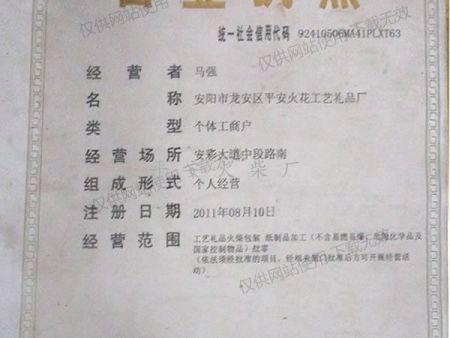 统一社会信用代码 92410506MA41PLXT63
经营者 马强
名称 安阳市龙安区平安火花工艺礼品厂
类型 个体工商户
经营场所 安彩大道中段路南
组成形式 个人经营
注册日期 2011年08月10日
经营范围 工艺礼品火柴包装 纸制品加工（不含易燃易爆、危险化学品及
国家控制物品）批零
（依法须经批准的项目，经相关部门批准后方可开展经营活
动）
仅供网站使用 下载无效
仅供网站使用 下载无效
仅供网站使用 下载无效
火柴厂